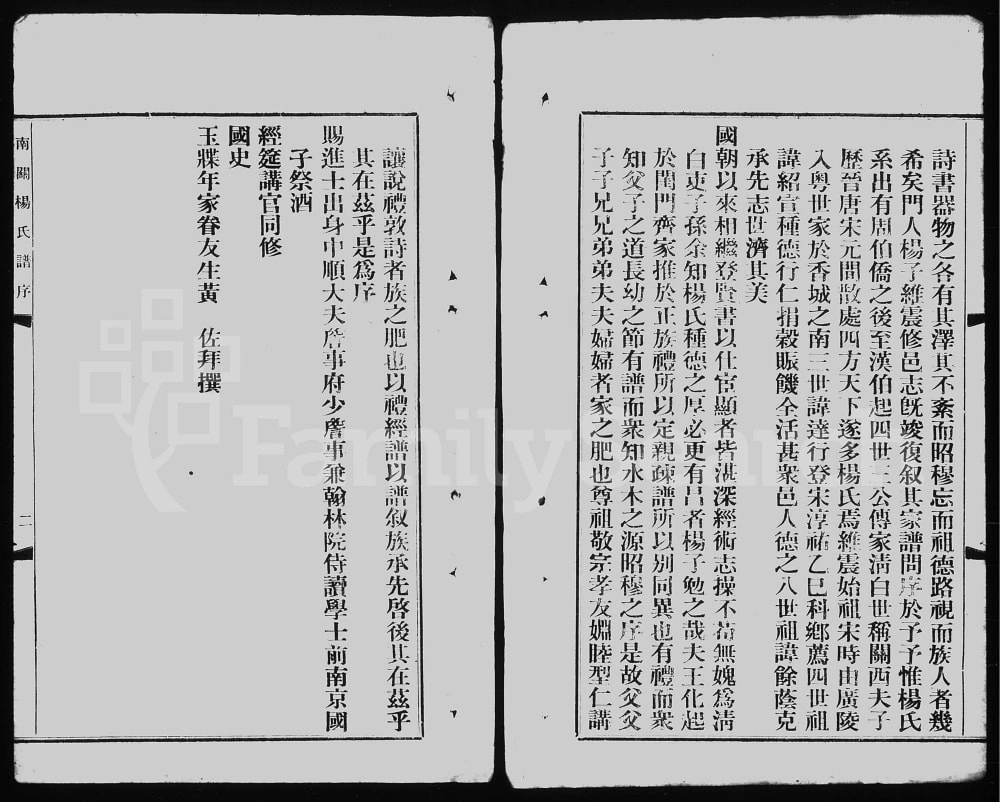 詩書器物之各有其澤其不紊而昭穆忘而祖德路視而族人者幾
希矣門人楊子維震修邑志旣竣復叙其家譜問序於予予惟楊氏
系出有周伯僑之後至漢伯起四世三公傳家淸白世稱關西夫子
歷晉唐宋元間散處四方天下遂多楊氏焉維震始祖宋時由廣陵
入粤世家於香城之南三世諱達行登宋淳祐乙巳科鄕薦四世祖
諱紹宣種德行仁捐穀賑饑全活甚衆邑人德之八世祖諱餘蔭克
承先志世濟其美
國朝以來相繼登賢書以仕宦顯者皆湛深經術志操不苟無媿爲淸
白吏子孫余知楊氏種德之厚必更有昌者楊子勉之哉夫王化起
於閨門齊家推於正族禮所以定親疎譜所以别同異也有禮而衆
知父子之道長幼之節有譜而衆知水木之源昭穆之序是故父父
子子兄兄弟弟夫夫婦婦者家之肥也尊祖敬宗孝友婣睦型仁講
讓說禮敦詩者族之肥也以禮經譜以譜叙族承先啓後其在茲乎
其在茲乎是爲序
賜進士出身中順大夫詹事府少詹事兼翰林院侍讀學士前南京國
子祭酒
經筵講官同修
國史
玉牒年家眷友生黃 佐拜撰
南關楊氏譜序
二
FamilySearch